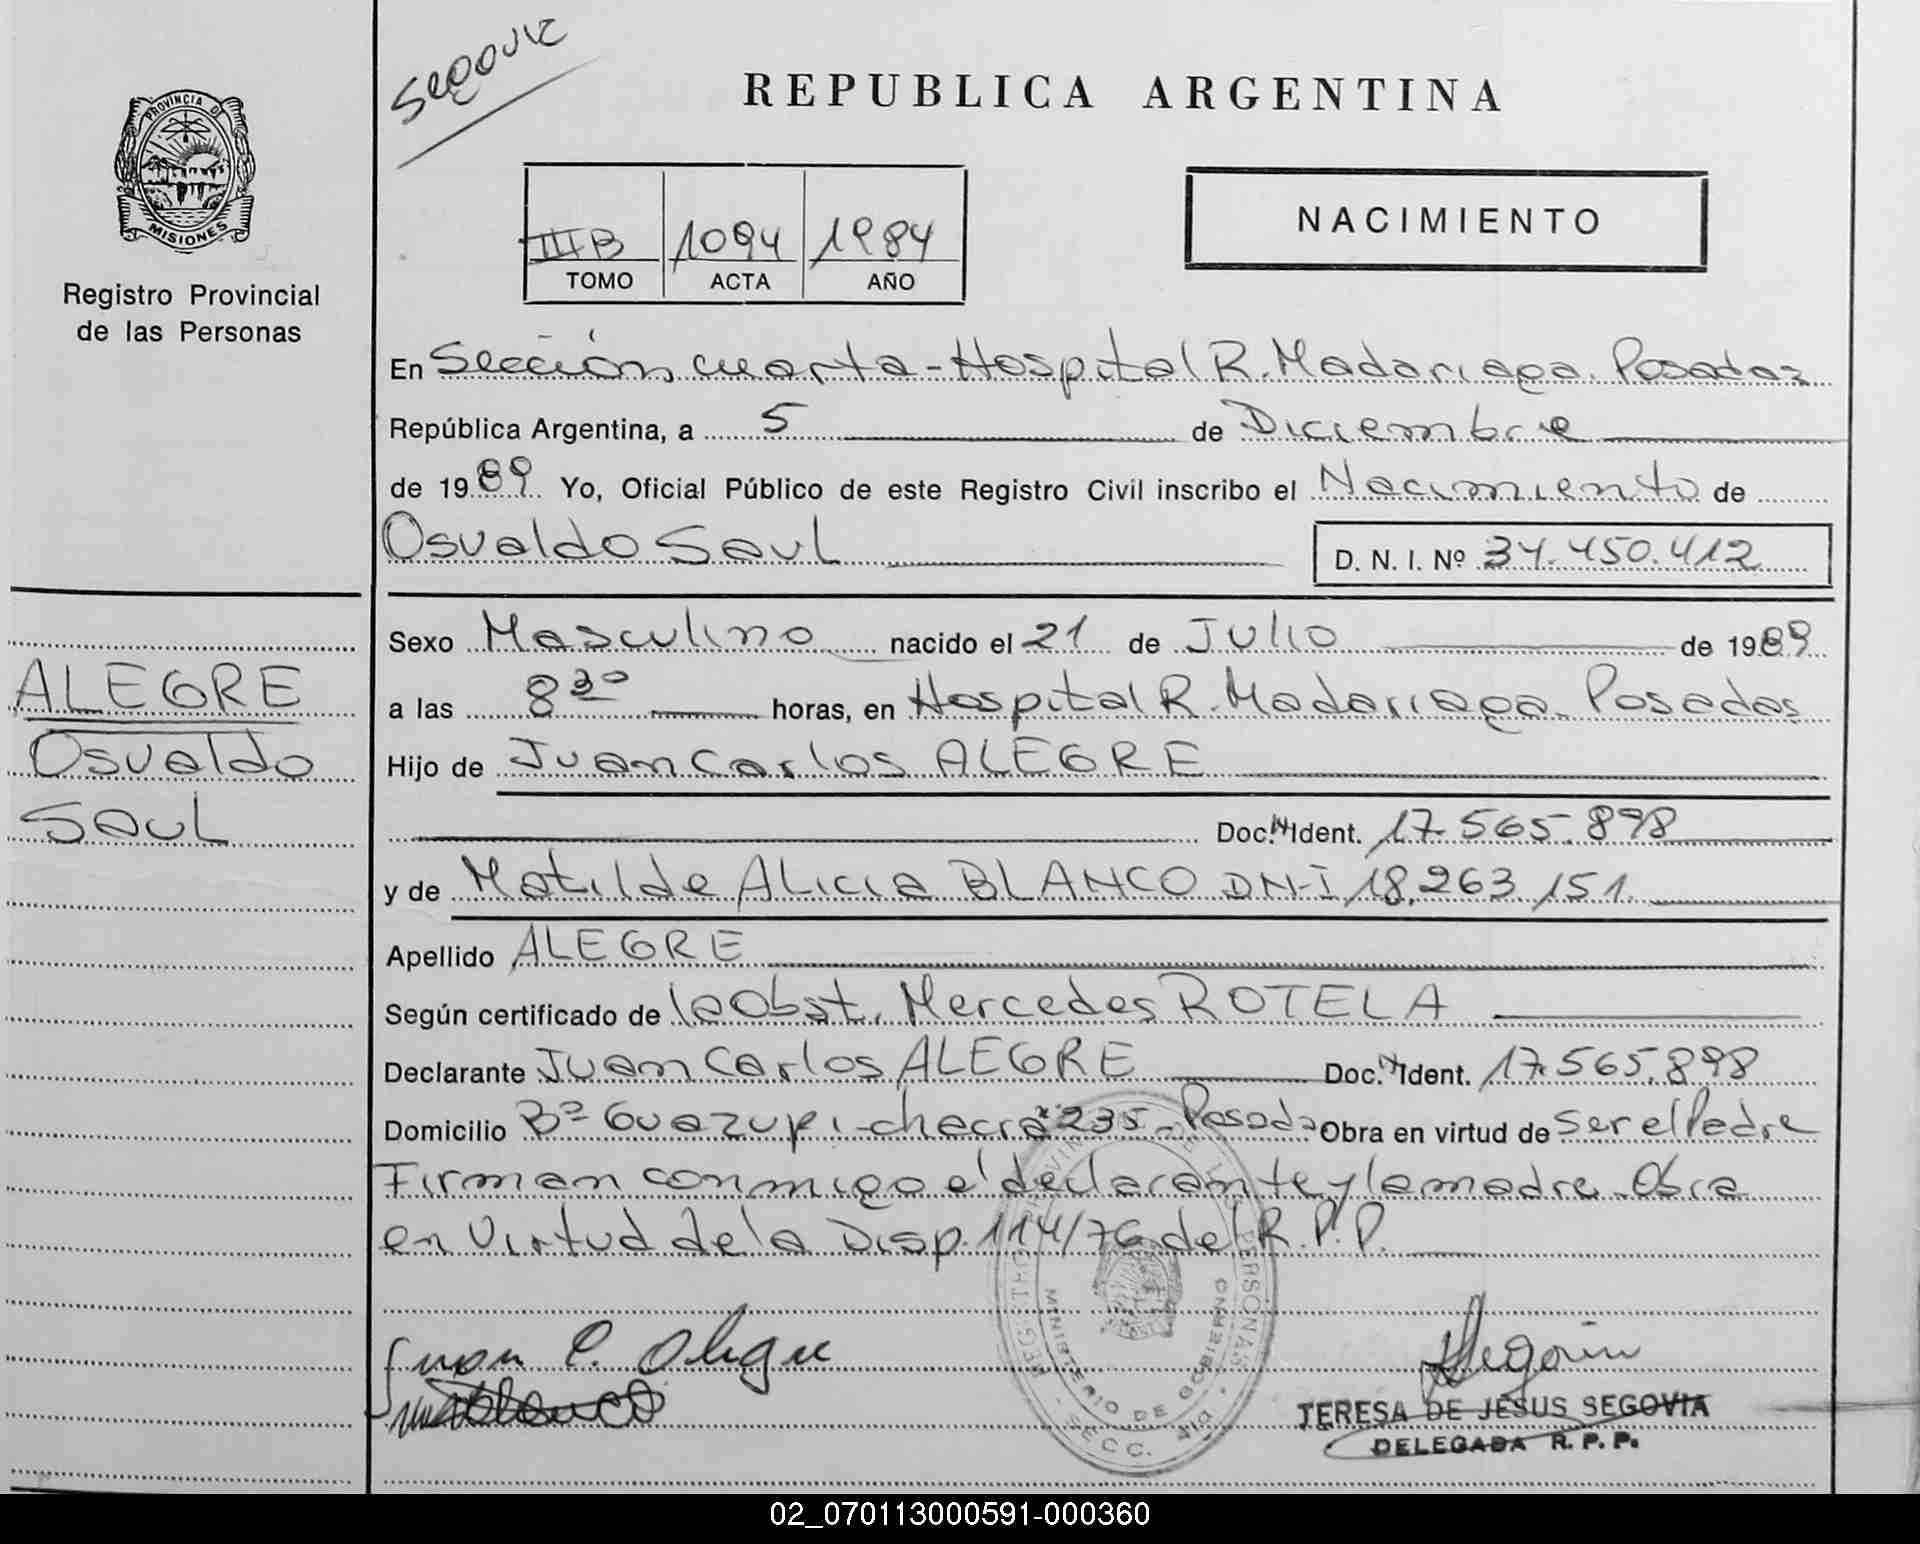 Segovia
REPUBLICA ARGENTINA
PROVINCIA DE
MISIONES
Registro Provincial
de las Personas
III B 1094 1984
TOMO ACTA AÑO
NACIMIENTO
En Sección cuarta - Hospital R. Madariaga. Posadas
República Argentina, a 5 de Diciembre
de 1989 Yo, Oficial Público de este Registro Civil inscribo el Nacimiento de
Osvaldo Saul D. N. I. Nº 34.450.412
Sexo Masculino nacido el 21 de Julio de 1989
a las 8 30 horas, en Hospital R. Madariaga. Posadas
Hijo de Juan Carlos ALEGRE
Doc. Ident. 17.565.898
y de Matilde ALicia BLANCO DN-I 18.263.151.
Apellido ALEGRE
Según certificado de la Obst. Mercedes ROTELA
Declarante Juan Carlos ALEGRE Doc. Ident. 17.565.898
Domicilio Bº Guazupi - chacra 235 - Posadas Obra en virtud de ser el Padre
Firman conmigo el declarante y la madre. Obra
en Virtud de la Disp. 114/76 del R.P.P.
ALEGRE
Osvaldo
Saul
Juan C. Alegre
Blanco
Segovia
TERESA DE JESUS SEGOVIA
DELEGADA R. P. P.
MINISTERIO DE GOBIERNO
SECC. 4ta
02_070113000591-000360